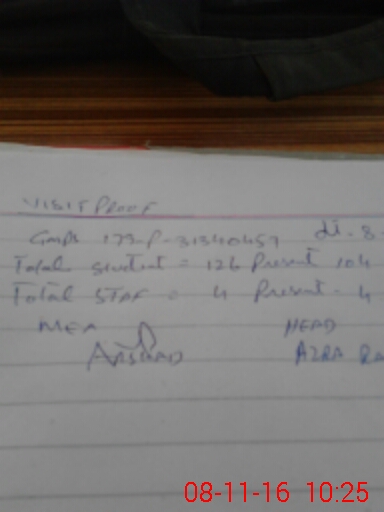 VISIT PROOF
dt. 8-
GMPS 173-P-31340457
Total student = 126 Present 104
Total STAF = 4 Present - 4
MEA HEAD
ARSHAD AZRA
08-11-16 10:25